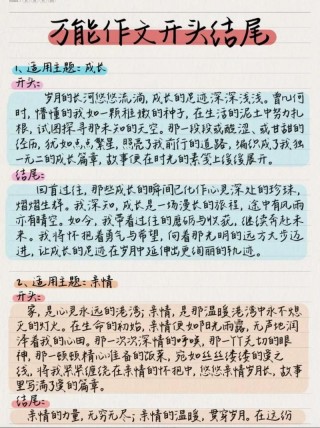 万能作文开头结尾
1、适用主题：成长
开头：
岁月的长河悠悠流淌，成长的足迹深深浅浅。曾几何
时，懵懂的我如一颗稚嫩的种子，在生活的泥土中努力扎
根，试图探寻那未知的天空。那一段段或酸涩、或甘甜的
经历，犹如点点繁星，照亮了我前行的道路，编织成了我独
一无二的成长篇章，故事便在时光的素笺上缓缓展开。
结尾：
回首过往，那些成长的瞬间已化作心灵深处的珍珠，
熠熠生辉。我深知，成长是一场漫长的旅程，途中有风雨
亦有晴空。如今，我带着过往的磨砺与收获，继续奔赴未
来。我将怀揣着勇气与希望，向着那光明的远方大步迈
进，让成长的足迹在岁月中延伸出更绚丽的轨迹。
2、适用主题：亲情
开头：
家，是心灵永远的港湾；亲情，是那温暖港湾中永不熄
灭的灯火。在生命的初始，亲情便如阳光雨露，无声地润
泽着我的心田。那一次次深情的呼唤，那一丫关切的眼
神，那一顿顿精心准备的饭菜，宛如丝丝缕缕的爱之
线，将我紧紧缠绕在亲情的怀抱中，悠悠亲情岁月长，故事
里写满了爱的篇章。
结尾：
亲情的力量，无穷无尽；亲情的温暖，贯穿岁月。在这份